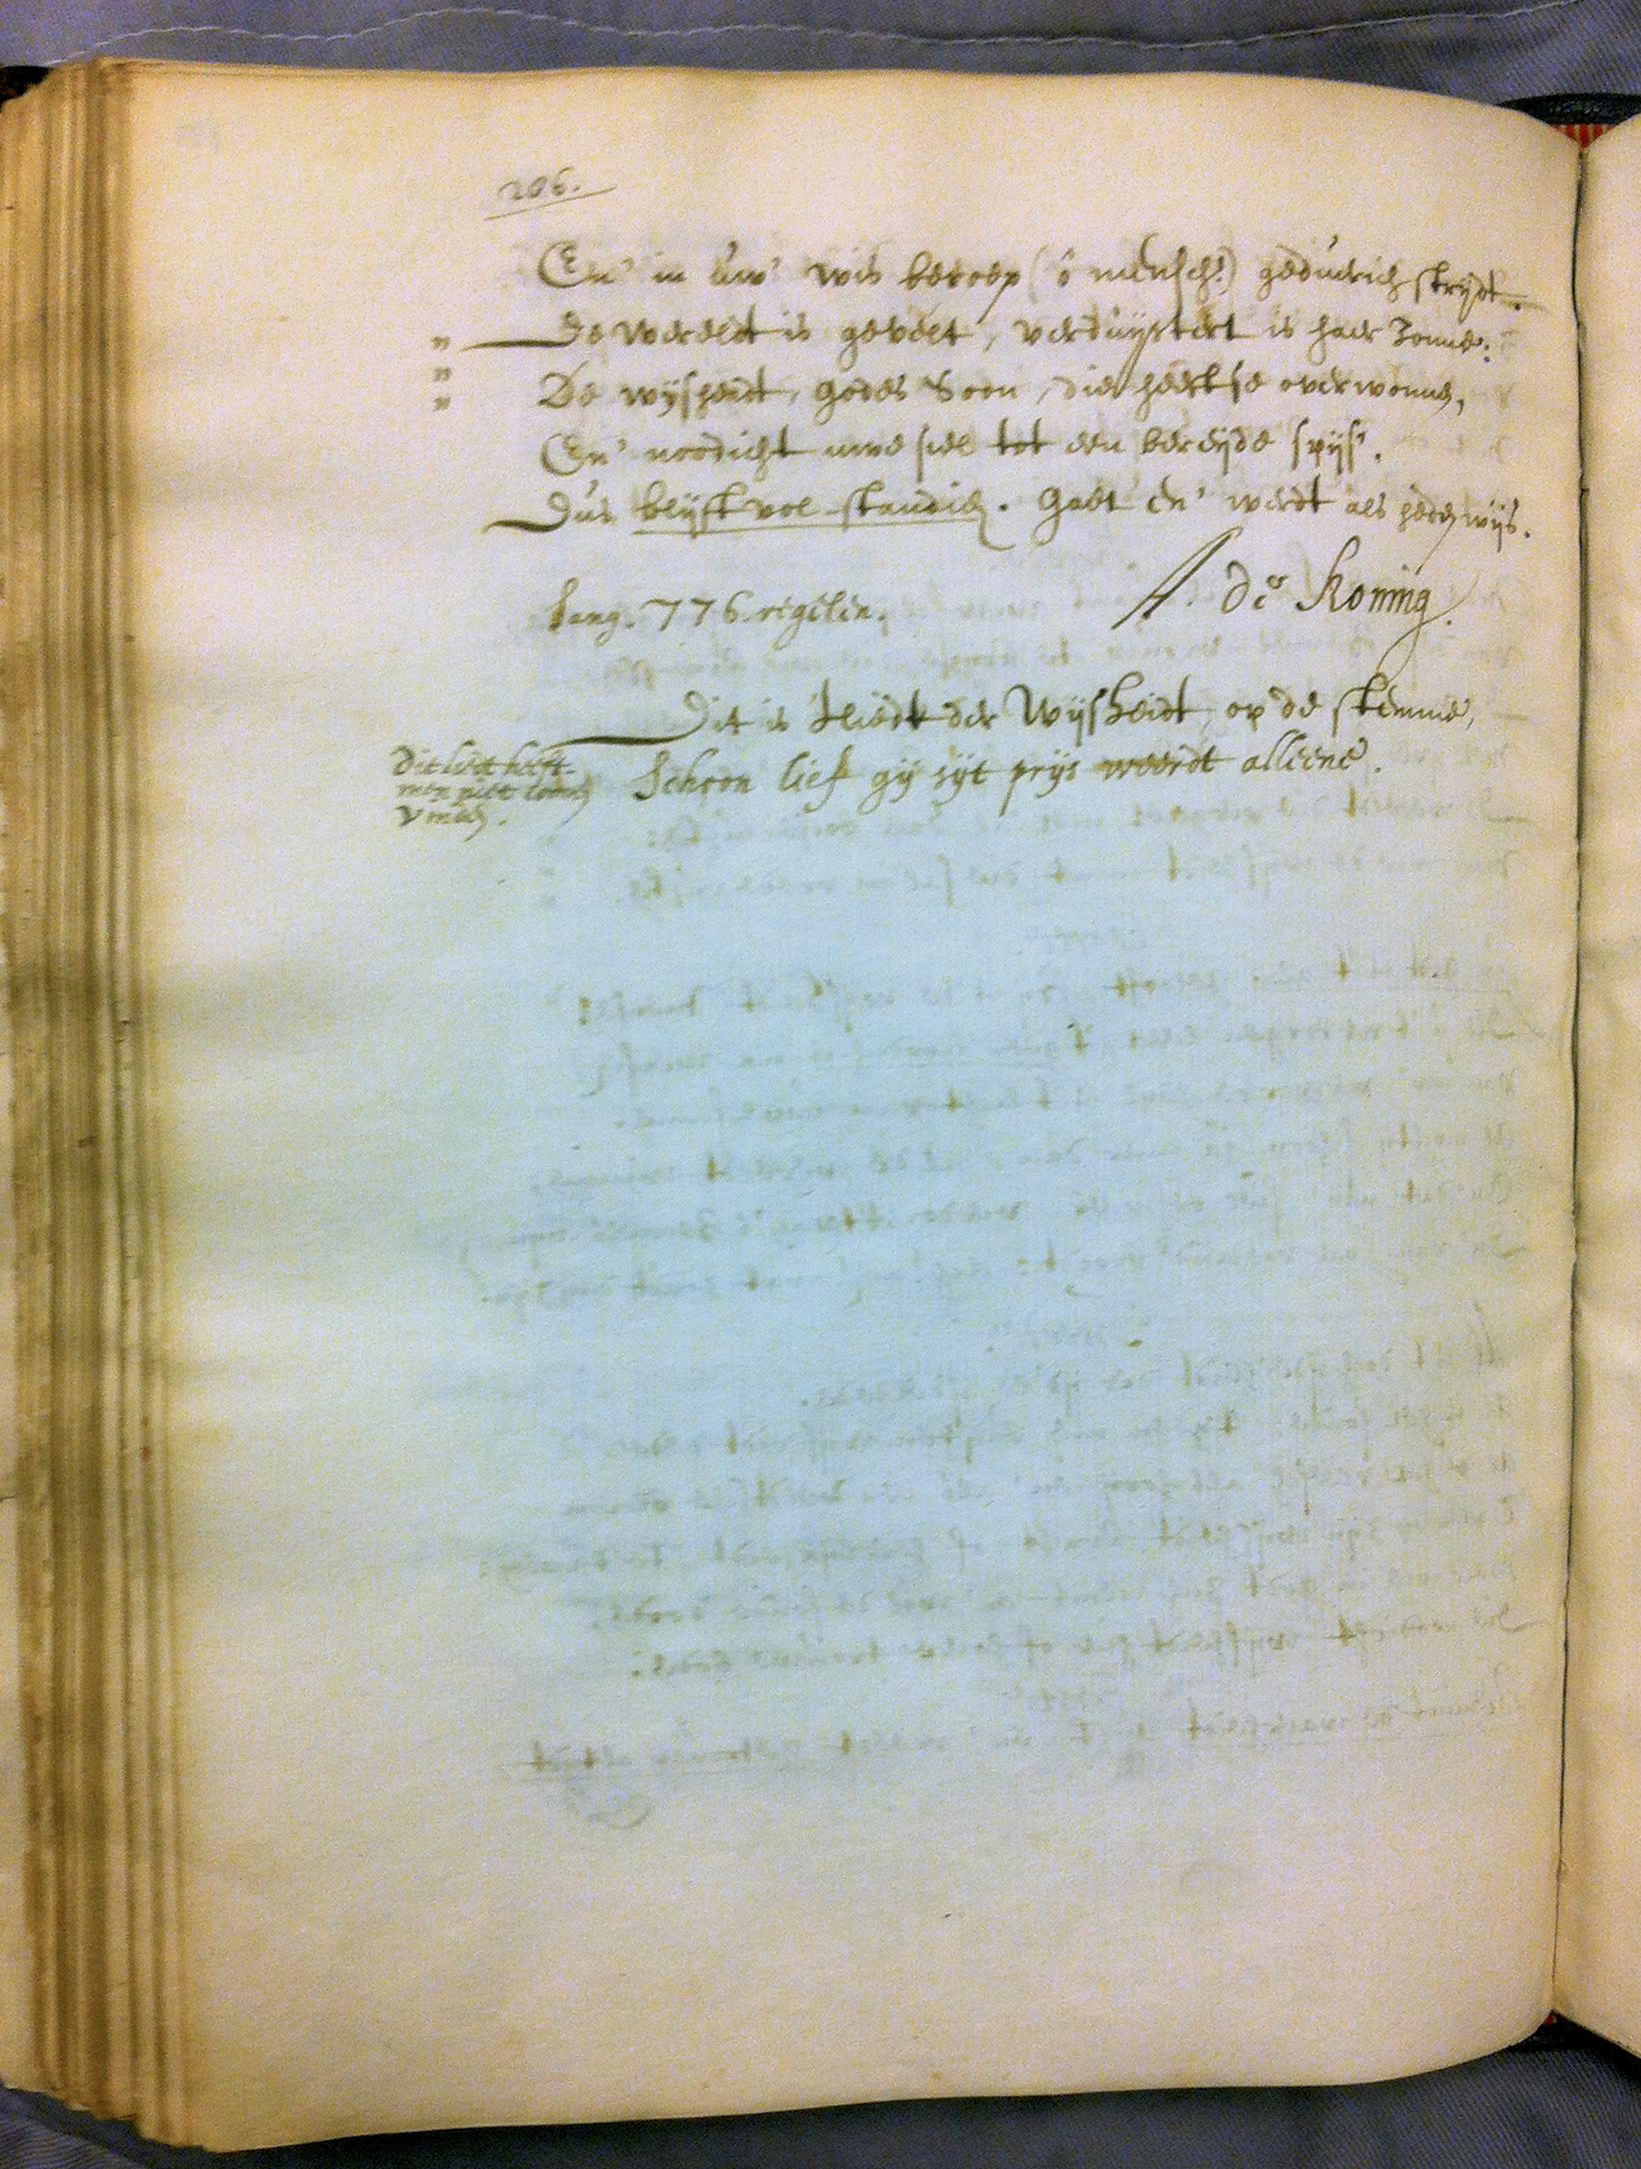 206.
En' in uw' wis beroep (ô mensch!) geduerich strijdt.
" De Wereldt is gevelt, verduijstert is haer Zonne:
" De wijsheidt, Godes Soon, die heeftse overwonne,
" En' noodicht uwe siel tot een bereijde spijs'.
Dus blijft vol-standich. Gaet en' werdt als heden wijs.
Lang. 776. regelen.
A. de Koning.
Dit is 't liedt der Wijsheidt, op de stemme,
Schoon lief gij sijt prijs weerdt alleene.
Dit liedt heeft
men niet